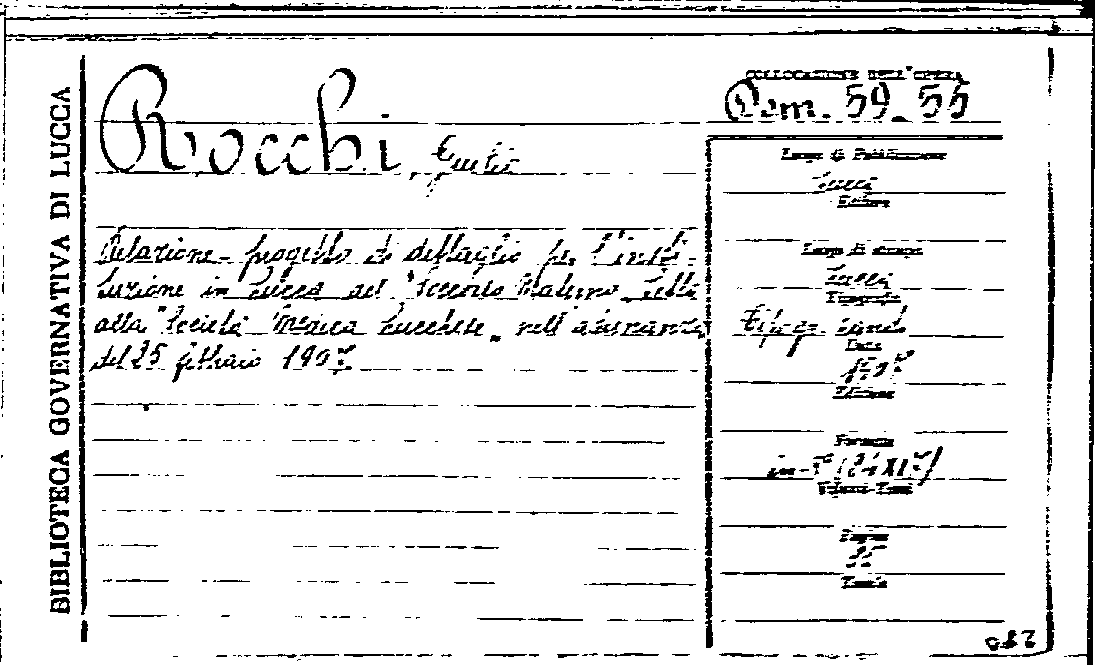 BIBLIOTECA GOVERNATIVA DI LUCCA
Rocchi,
Relazione-progetto di dettaglio per l'insti-
tuzione in Lucca del "Soccorso Materno" letta
alla "Società Medica Lucchese" nell'adunanza
del 25 febbraio 1907.
COLLOCAZIONE DELL'OPERA
59. 55
Luogo di Pubblicazione
Lucca
Editore
Luogo di stampa
Lucca
Tipografia
Tipogr.
Data
1907
Edizione
Formato
in-8° (24x17)
Volumi-Tomi
Pagine
Tavole